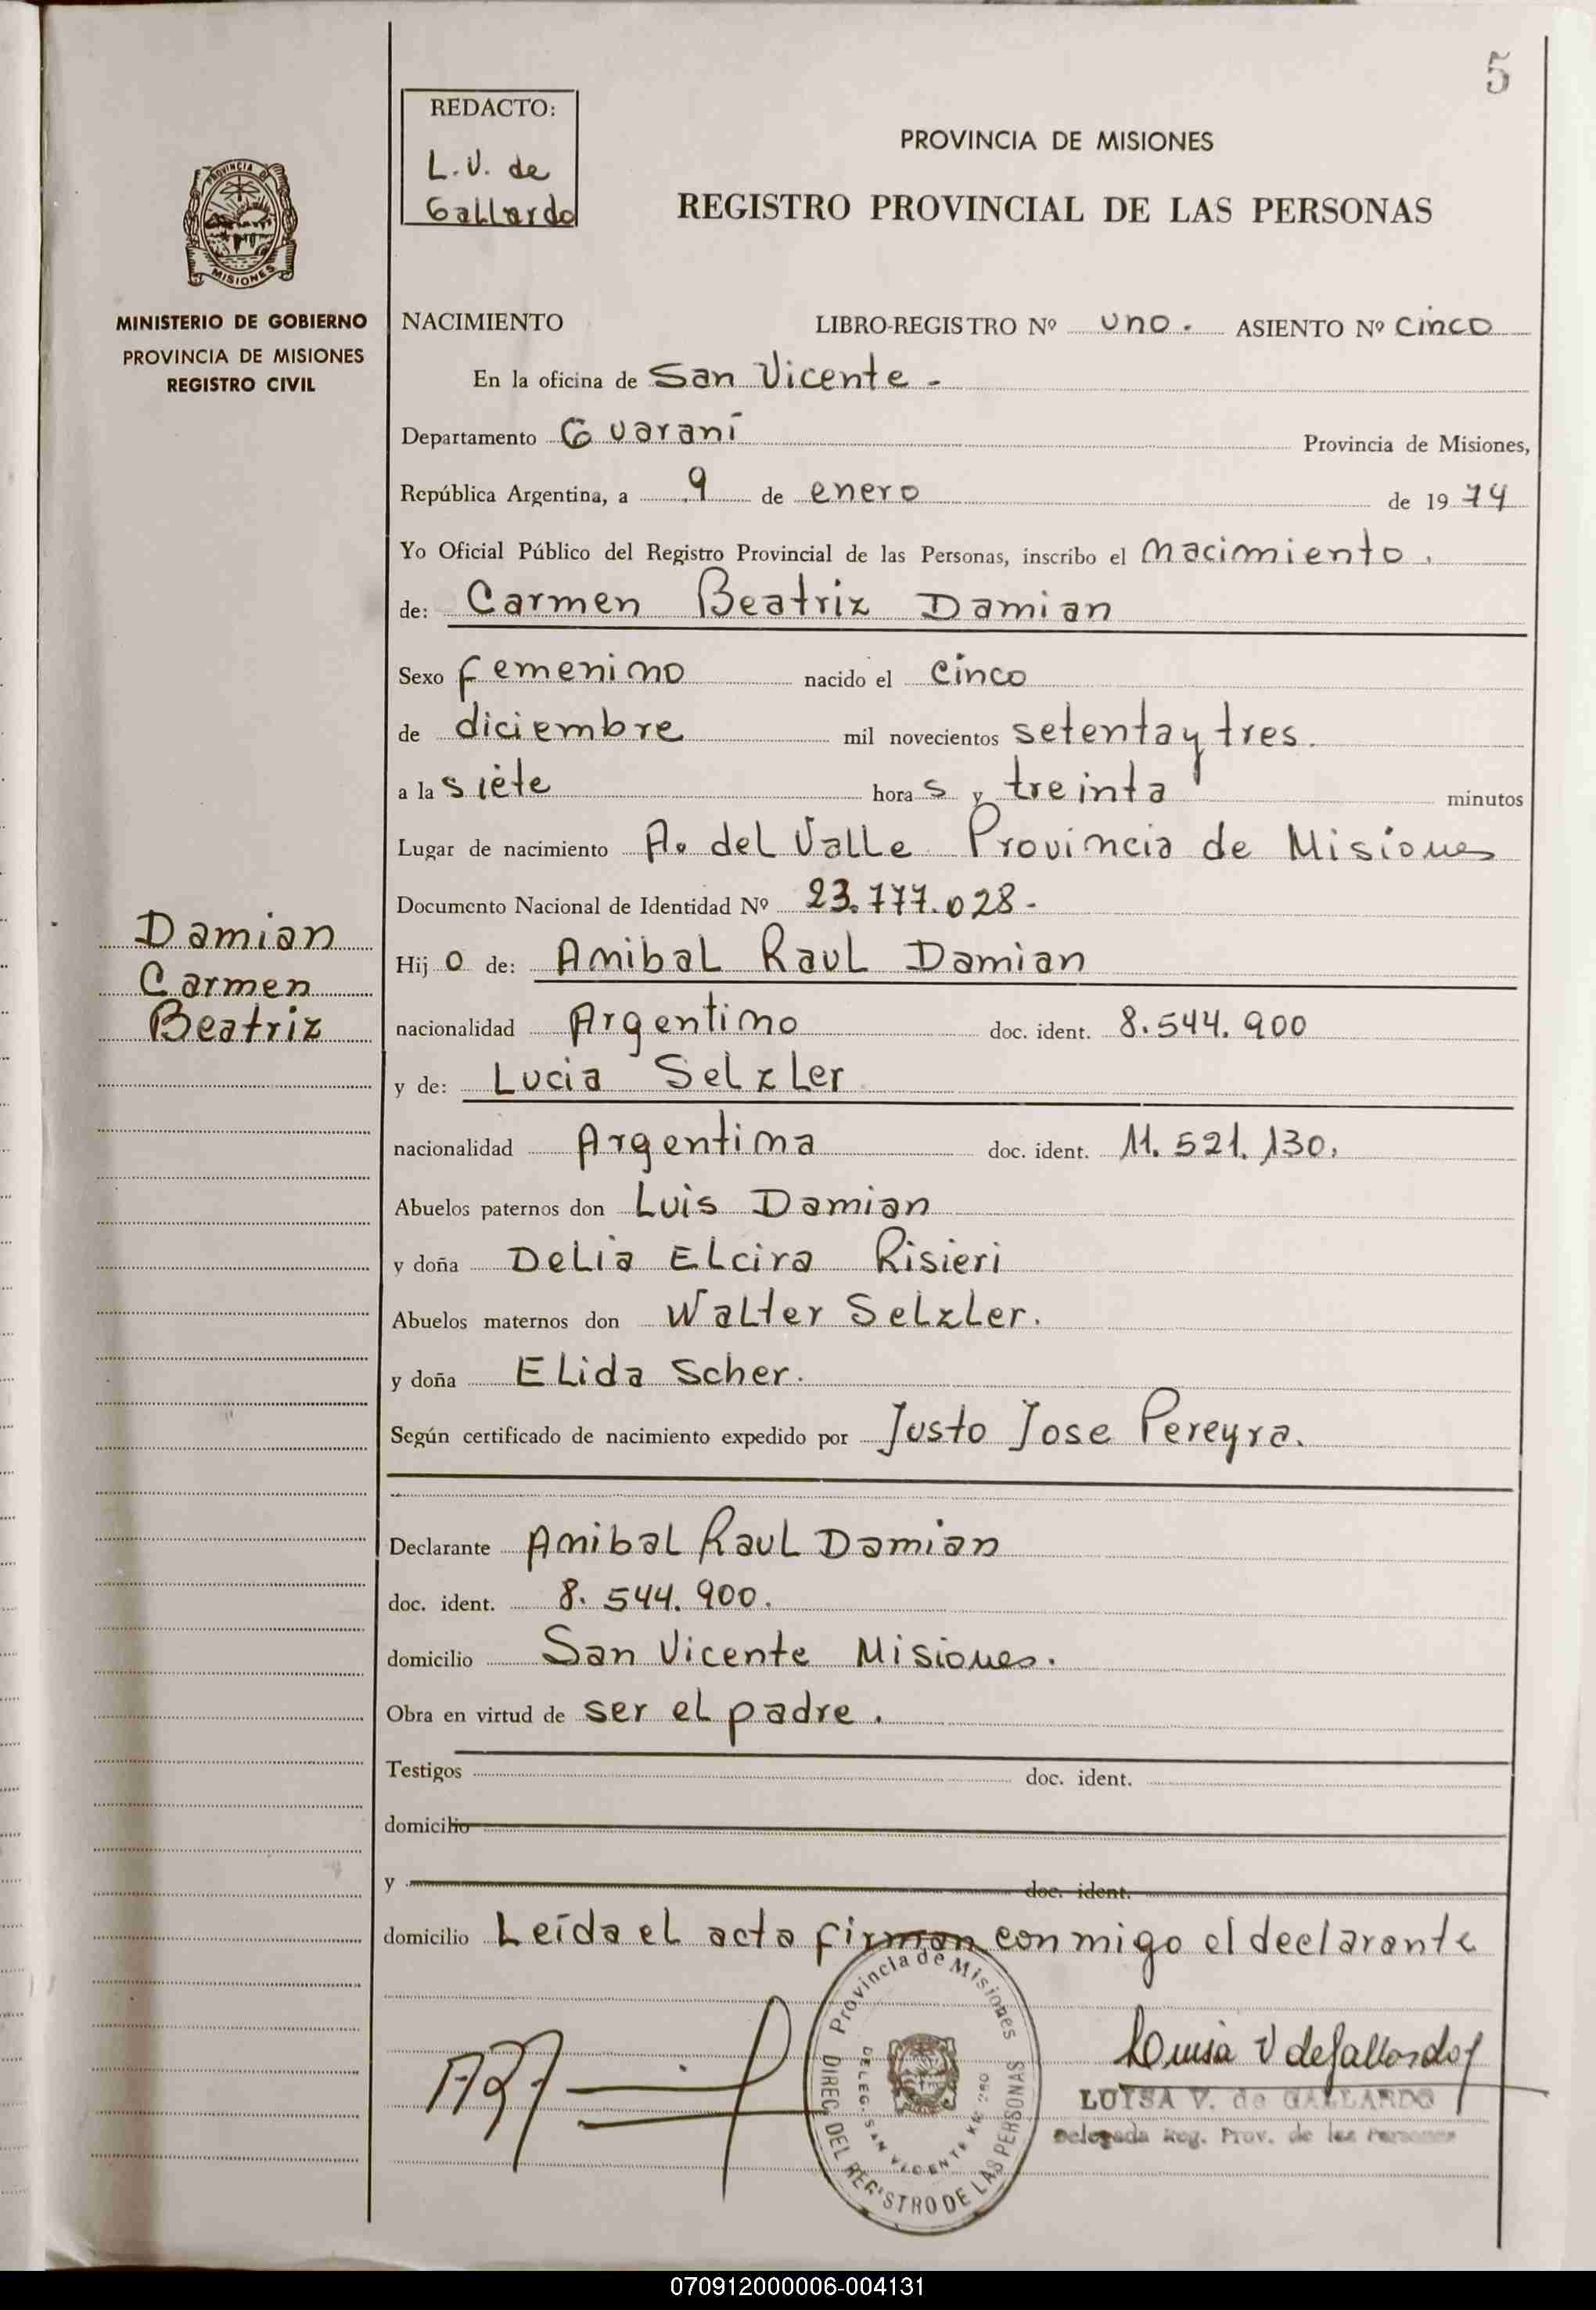 5
REDACTO:
L.V. de
Gallardo
PROVINCIA DE MISIONES
REGISTRO PROVINCIAL DE LAS PERSONAS
PROVINCIA D
MISIONES
MINISTERIO DE GOBIERNO
PROVINCIA DE MISIONES
REGISTRO CIVIL
NACIMIENTO LIBRO-REGISTRO Nº uno. ASIENTO Nº cinco
En la oficina de San Vicente -
Departamento Guaraní Provincia de Misiones,
República Argentina, a 9 de enero de 1974
Yo Oficial Público del Registro Provincial de las Personas, inscribo el nacimiento.
de: Carmen Beatriz Damian
Sexo femenino nacido el cinco
de diciembre mil novecientos setenta y tres.
a la siete horas y treinta minutos
Lugar de nacimiento A. del Valle Provincia de Misiones
Documento Nacional de Identidad Nº 23.777.028-
Damian
Carmen
Beatriz
Hijo de: Anibal Raul Damian
nacionalidad Argentino doc. ident. 8.544.900
y de: Lucia Selzler
nacionalidad Argentina doc. ident. 11.521.130.
Abuelos paternos don Luis Damian
y doña Delia Elcira Risieri
Abuelos maternos don Walter Selzler.
y doña Elida Scher.
Según certificado de nacimiento expedido por Justo Jose Pereyra.
Declarante Anibal Raul Damian
doc. ident. 8.544.900.
domicilio San Vicente Misiones.
Obra en virtud de ser el padre.
Testigos doc. ident.
domicilio
y doc. ident.
domicilio Leída el acta firman conmigo el declarante
Provincia de Misiones
DIREC. DEL REGISTRO DE LAS PERSONAS
DELEG. SAN VICENTE KM
Luisa V de Gallardo
LUISA V. de GALLARDO
Delegada Reg. Prov. de las Personas
070912000006-004131